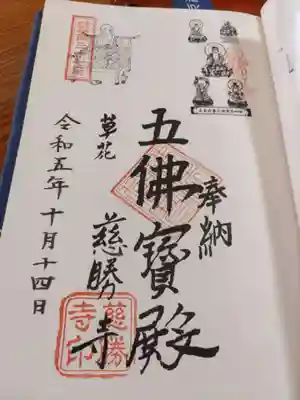 奉納
五佛寳殿
草花 慈勝寺
令和五年十月十四日
慈勝
寺印